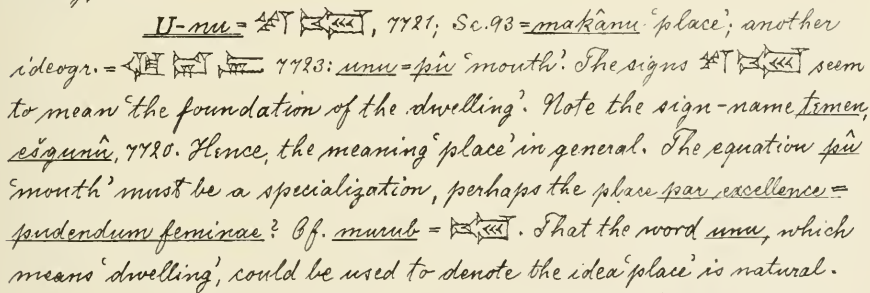 U-nu = 7721; Sc. 93 = makânu ‘place’; another
ideogr. = 7723: unu = pû ‘mouth’. The signs seem
to mean ‘the foundation of the dwelling’. Note the sign-name temen,
ešgunû, 7720. Hence, the meaning ‘place’ in general. The equation pû
‘mouth’ must be a specialization, perhaps the place par excellence =
pudendum feminae? Cf. murub = . That the word unu, which
means ‘dwelling’, could be used to denote the idea ‘place’ is natural.